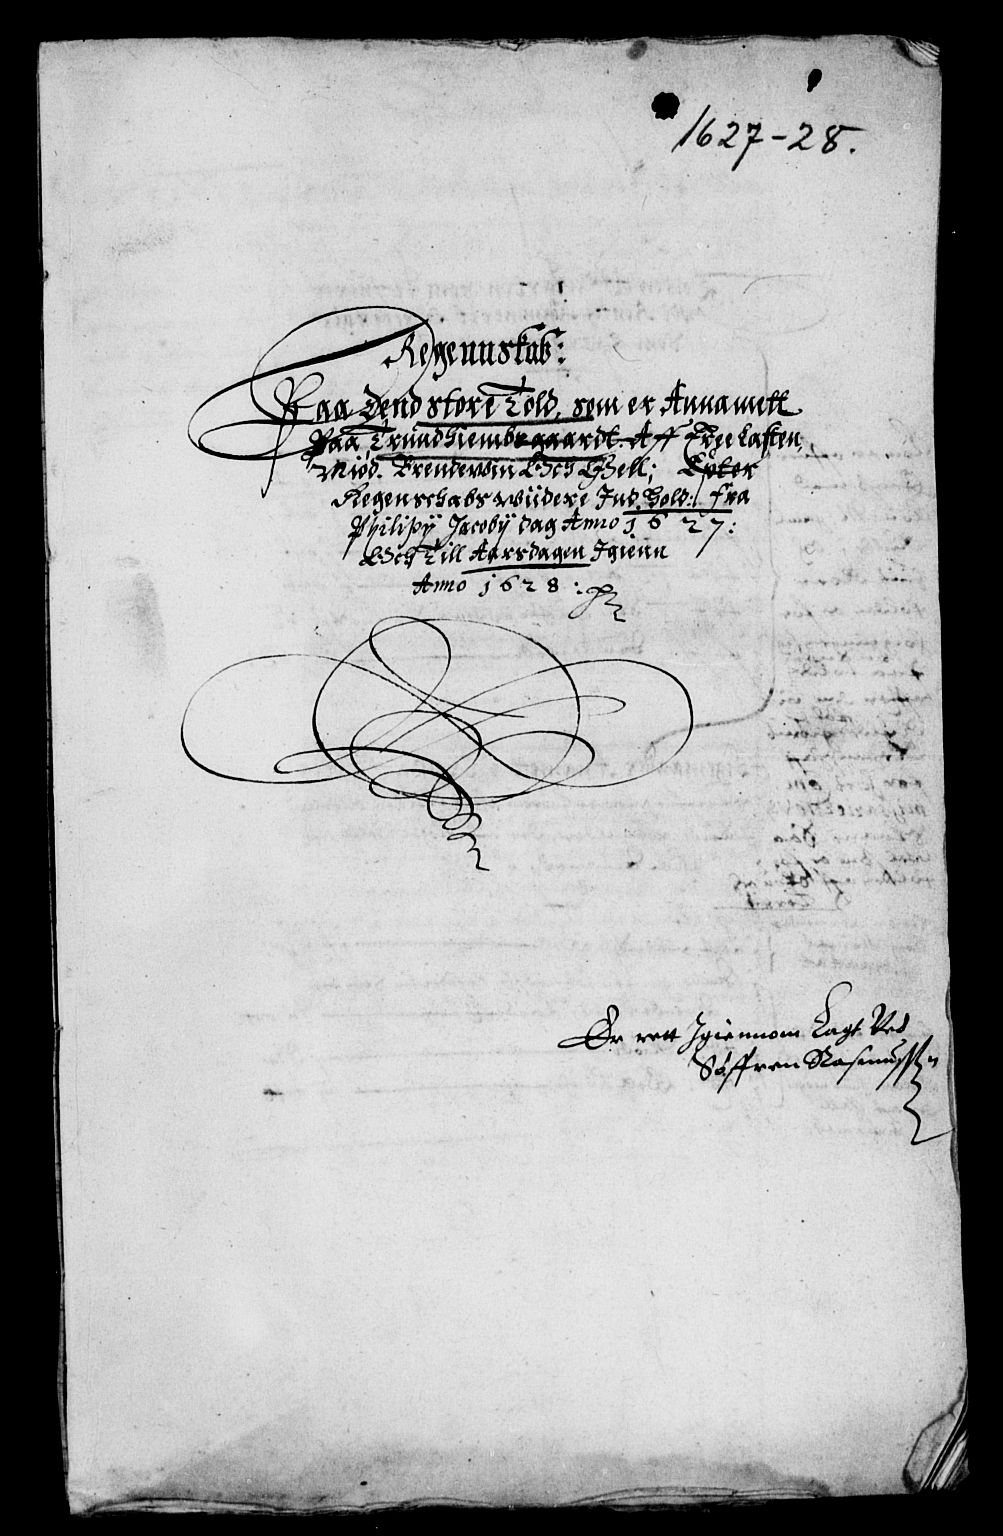 1627-28.
Regennskab:
Paa Dend store Told, som er Annamett
Paa Trundhiembsgaardt. Aff Træ lasten,
Miød. Brendewin Och Øell; Epter
Regenschabs wiidere Ind hold: fra
Philippij Jacobij dag Anno 1627:
Och Till Aarsdagen Igienn
Anno 1628:
Er rett Igiennom Lagt Ved
Søffren Rasmuss